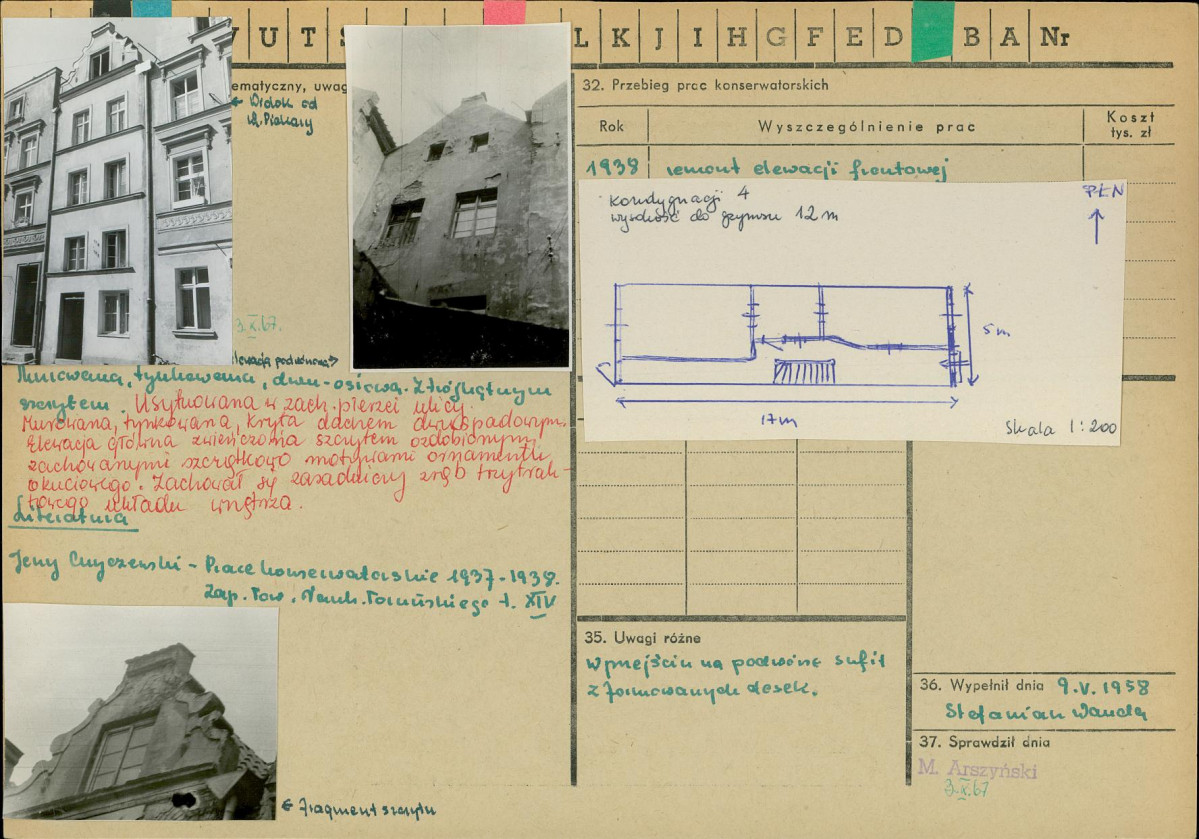 U T S L K J I H G F E D B A Nr
ematyczny, uwag
← Widok od
ul. Piekary
3.X.67.
elewacja podwórzowa →
Murowana, tynkowana, dwu-osiowa. Z trójkątnym
szczytem. Usytuowana w zach. pierzei ulicy.
Murowana, tynkowana, kryta dachem dwuspadowym.
Elewacja główna zwieńczona szczytem ozdobionym
zachowanymi szczątkowo motywami ornamentu
okuciowego. Zachował się zasadniczy zrąb trzytrak-
towego układu wnętrza.
Literatura
Jerzy Chyczewski - Prace konserwatorskie 1937-1938.
Zap. Tow. Nauk. Toruńskiego t. XIV
← Fragment szczytu
32. Przebieg prac konserwatorskich
Rok Wyszczególnienie prac Koszt
tys. zł
1938 remont elewacji frontowej
kondygnacji 4
wysokość do gzymsu 12 m
PŁN
5 m
17 m
Skala 1:200
35. Uwagi różne
W przejściu na podwórze sufit
z formowanych desek.
36. Wypełnił dnia 9.V.1958
Stefanian Wanda
37. Sprawdził dnia
M. Arszyński
3.X.67